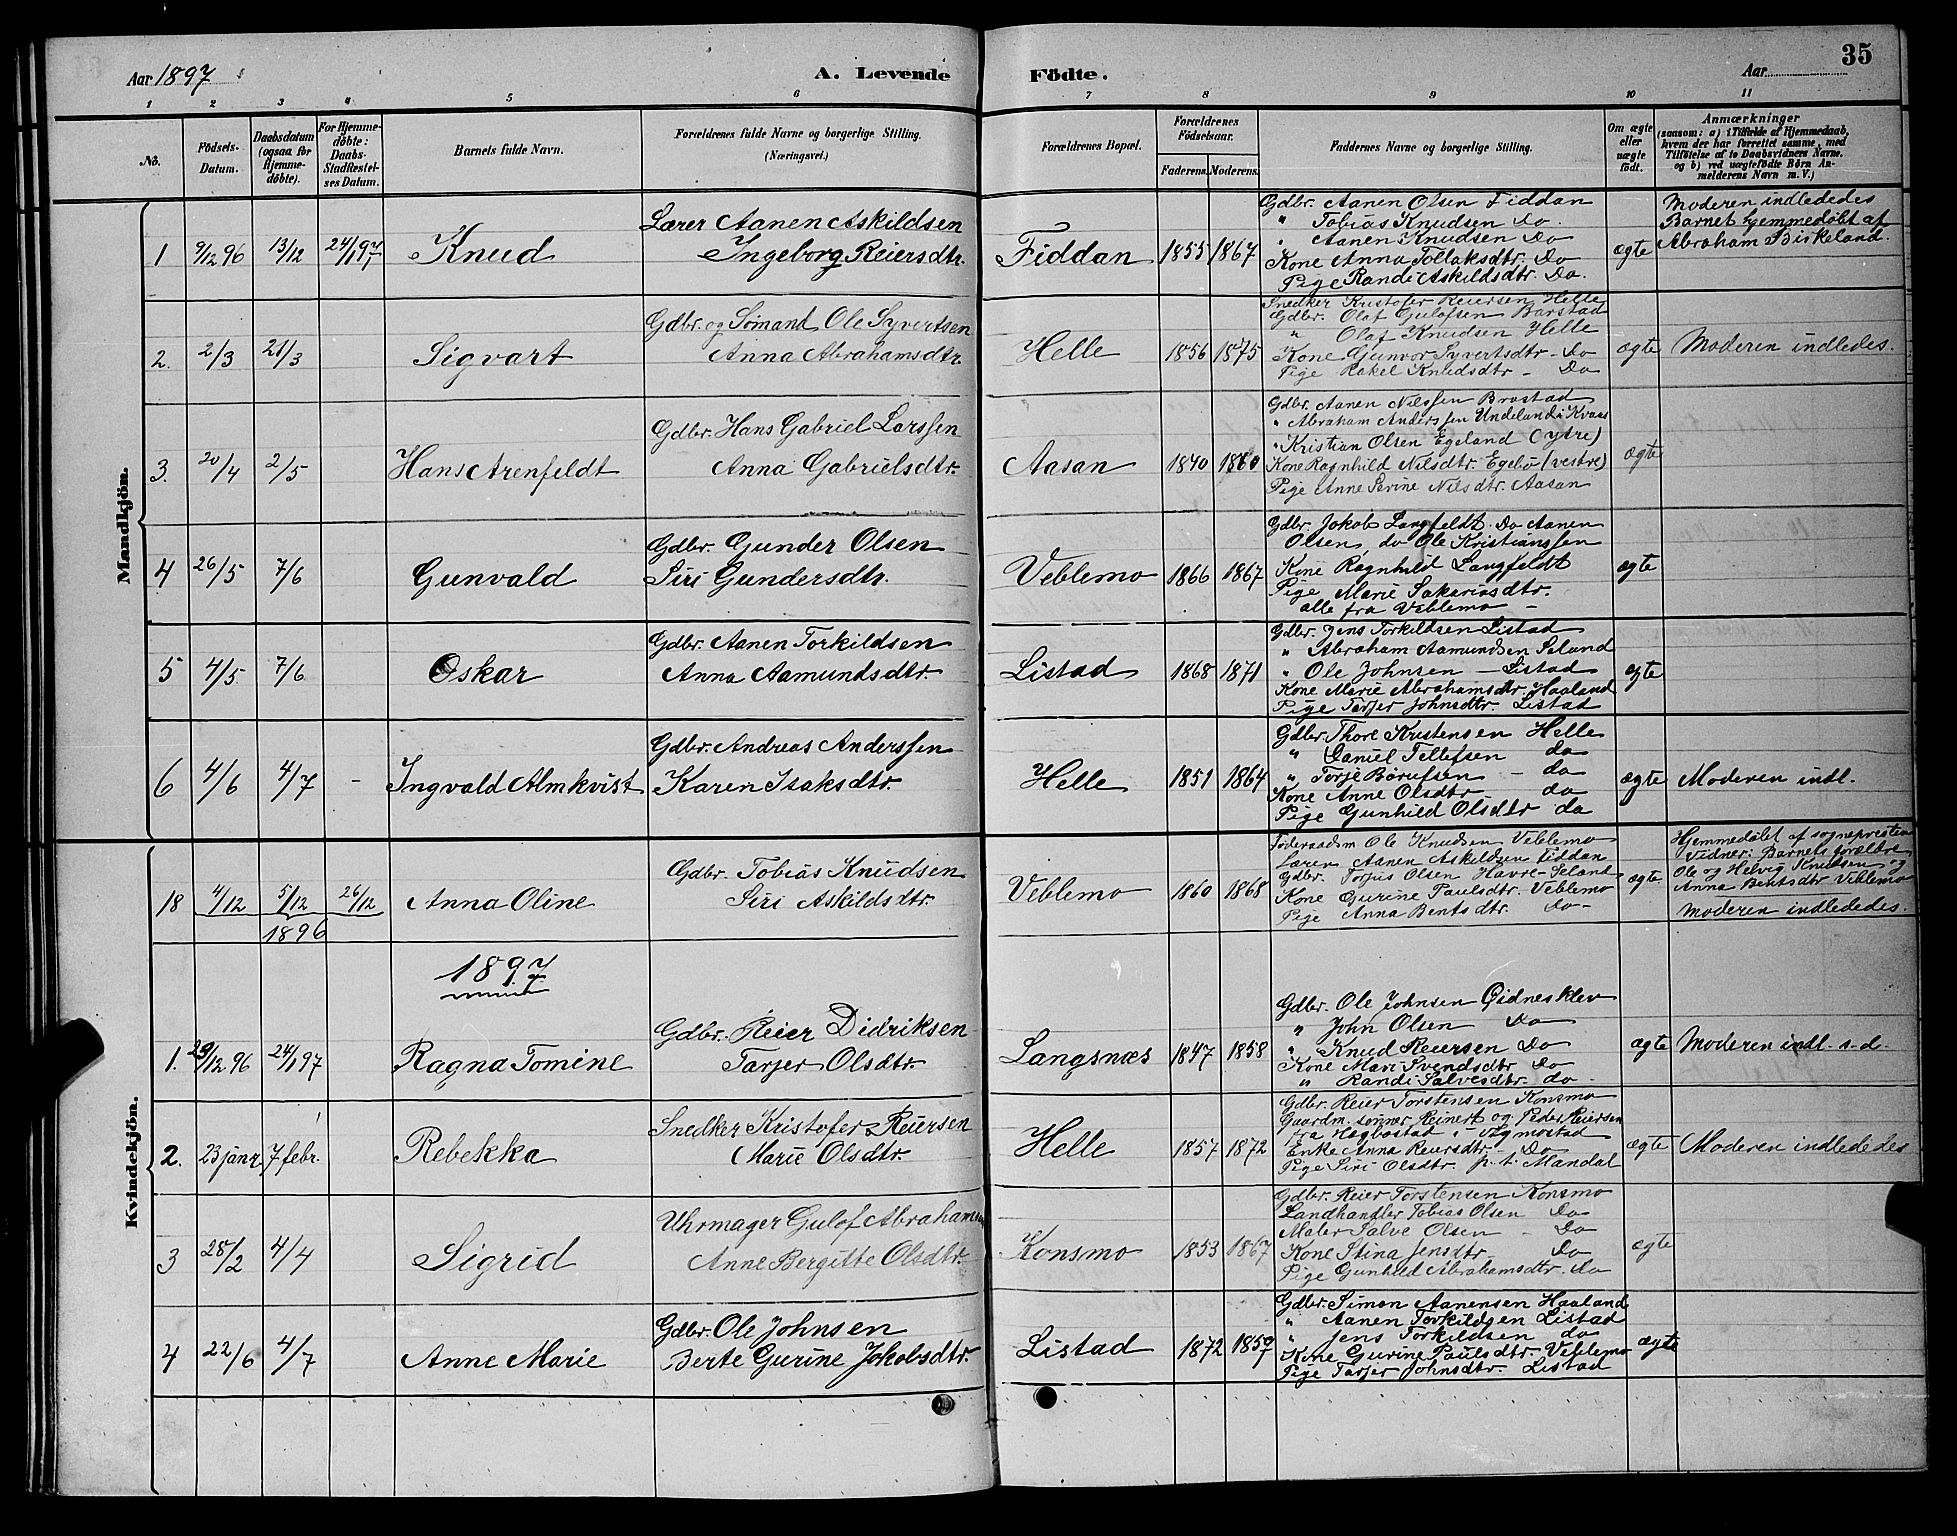 35
Aar 1897
A. Levende Födte.
Aar
1 2 3 4 5 6 7 8 9 10 11
No.
Födsels-Datum.
Daabsdatum (ogsaa for Hjemme-döbte).
For Hjemme-döbte: Daabs-Stadfæstel-ses Datum.
Barnets fulde Navn.
Forældrenes fulde Navne og borgerlige Stilling. (Næringsvei.)
Forældrenes Bopæl.
Forældrenes Födselsaar.
Faderens. Moderens.
Faddernes Navne og borgerlige Stilling.
Om ægte eller uægte födt.
Anmærkninger
(saasom: a) i Tilfælde af Hjemmedaab,
hvem der har forrettet samme, med
Tilföielse af to Daabsvidners Navne,
og b) ved uægtefödte Börn An-
melderens Navn m. V.)
Mandkjön.
1 9/12 96 13/12 24/1 97 Knud
Lærer Aanen Askildsen
Ingeborg Reiersdtr.
Fiddan 1855 1867
Gdbr. Aanen Olsen Fiddan
" Tobias Knudsen do.
" Aanen Knudsen Do
Kone Anna Tollaksdtr. Do
Pige Randi Askildsdtr. Do.
ægte
Moderen indlededes
Barnet hjemmedøbt af
Abraham Birkeland.
2. 2/3 21/3 Sigvart
Gdbr. og Sømand Ole Syvertsen
Anna Abrahamsdtr.
Helle 1856 1875
Snedker Kristofer Reiersen Helle
Gdbr. Olaf Gulofsen Barstad
" Olaf Knudsen Helle
Kone Gunvor Syvertsdtr - Do
Pige Rakel Knudsdtr - Do
ægte
Moderen indledes.
3. 20/4 2/5 Hans Arenfeldt
Gdbr. Hans Gabriel Larssen
Anna Gabrielsdtr.
Aasan 1840 1860
Gdbr. Aanen Nilssen Brastad
" Abraham Anderssen Undeland i Kvaas
" Kristian Olsen Egeland (ytre)
Kone Ragnhild Nilsdtr. Egebø (vestre)
Pige Anne Serine Nilsdtr. Aasan
ægte
4 26/5 7/6 Gunvald
Gdbr. Gunder Olsen
Siri Gundersdtr.
Veblemo 1866 1867
Gdbr. Jakob Langfeldt. Do Aanen
Olsen, do Ole Kristianssen
Kone Ragnhild Langfeldt
Pige Marie Sakariasdtr.
alle fra Veblemo -
ægte
5 4/5 7/6 Oskar
Gdbr. Aanen Torkildsen
Anna Aamundsdtr.
Listad 1868 1871
Gdbr. Jens Torkildsen Listad
" Abraham Aamundsen Seland
" Ole Johnsen - Listad
Kone Marie Abrahamsdtr. Haaland
Pige Tarjer Johnsdtr. Listad
ægte
6 4/6 4/7 - Ingvald Almkvist
Gdbr. Andreas Anderssen
Karen Isaksdtr.
Helle 1851 1864
Gdbr. Thore Kristensen Helle
" Daniel Tellefsen do
" Torje Børufsen - do
Kone Anne Olsdtr - do
Pige Gunhild Olsdtr do
ægte
Moderen indl.
Kvindekjön.
18 4/12 5/12 26/12 Anna Oline
1896
Gdbr. Tobias Knudsen
Siri Askildsdtr.
Veblemo 1860 1868
Føderaadsm Ole Knudsen Veblemo
Læren Aanen Askildsen Fiddan
Gdbr. Torjus Olsen Havre-Seland
Kone Gurine Paulsdtr. Veblemo
Pige Anna Bentsdtr. do-
ægte
Hjemmedøbt af sognepresten
Vidner: Barnets forældre
Ole og Helvig Knudsen og
Anna Bentsdtr Veblemo
Moderen indlededes.
1897
1. 29/12 96 24/1 97 Ragna Tomine
Gdbr. Reier Didriksen
Tarjer Olsdtr.
Langsnæs 1847 1858
Gdbr. Ole Johnsen Eidnesklev
" John Olsen Do
" Knud Reiersen Do
Kone Mari Svendsdtr Do
" Randi Salvesdtr. do.
ægte
Moderen indl. s.d.
2. 23 janr. 7 febr. Rebekka
Snedker Kristofer Reiersen
Marie Olsdtr.
Helle 1857 1872
Gdbr. Reier Torstensen Konsmo
Gaardm.sønner Reinert og Peder Reiersen
fra Hægbostad i Vigmostad
Enke Anna Reiersdtr - Do
Pige Siri Olsdtr. p.t. Mandal
ægte
Moderen indlededes
3 28/2 4/4 Sigrid
Uhrmager Gulof Abrahamsen
Anne Bergitte Olsdtr.
Konsmo 1853 1867
Gdbr. Reier Torstensen Konsmo
Landhandler Tobias Olsen Do
Maler Salve Olsen - Do
Kone Stina Jensdtr. Do
Pige Gunhild Abrahamsdtr. Do
ægte
4 22/6 4/7 Anne Marie
Gdbr. Ole Johnsen
Berte Gurine Jakobsdtr.
Listad 1872 1859
Gdbr. Simon Aanensen Haaland
" Aanen Torkildsen Listad
" Jens Torkildsen do
Kone Gurine Paulsdtr. Veblemo
Pige Tarjer Johnsdtr. Listad
ægte